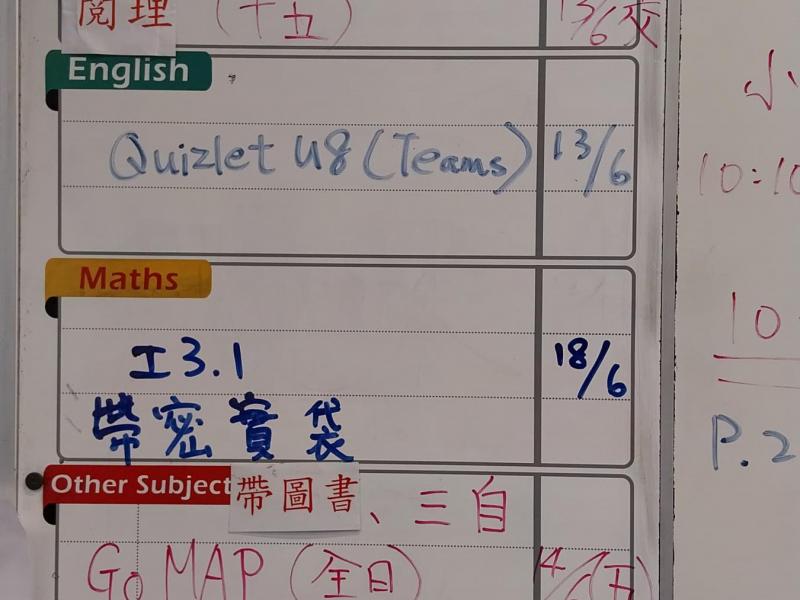 閱理 (十五) 13/6交
English
Quizlet U8 (Teams) 13/6
Maths
工3.1 18/6
帶密實袋
Other Subject 帶圖書、三自
Go MAP (全日) 14/6(五)
小
10:10
10
P.2